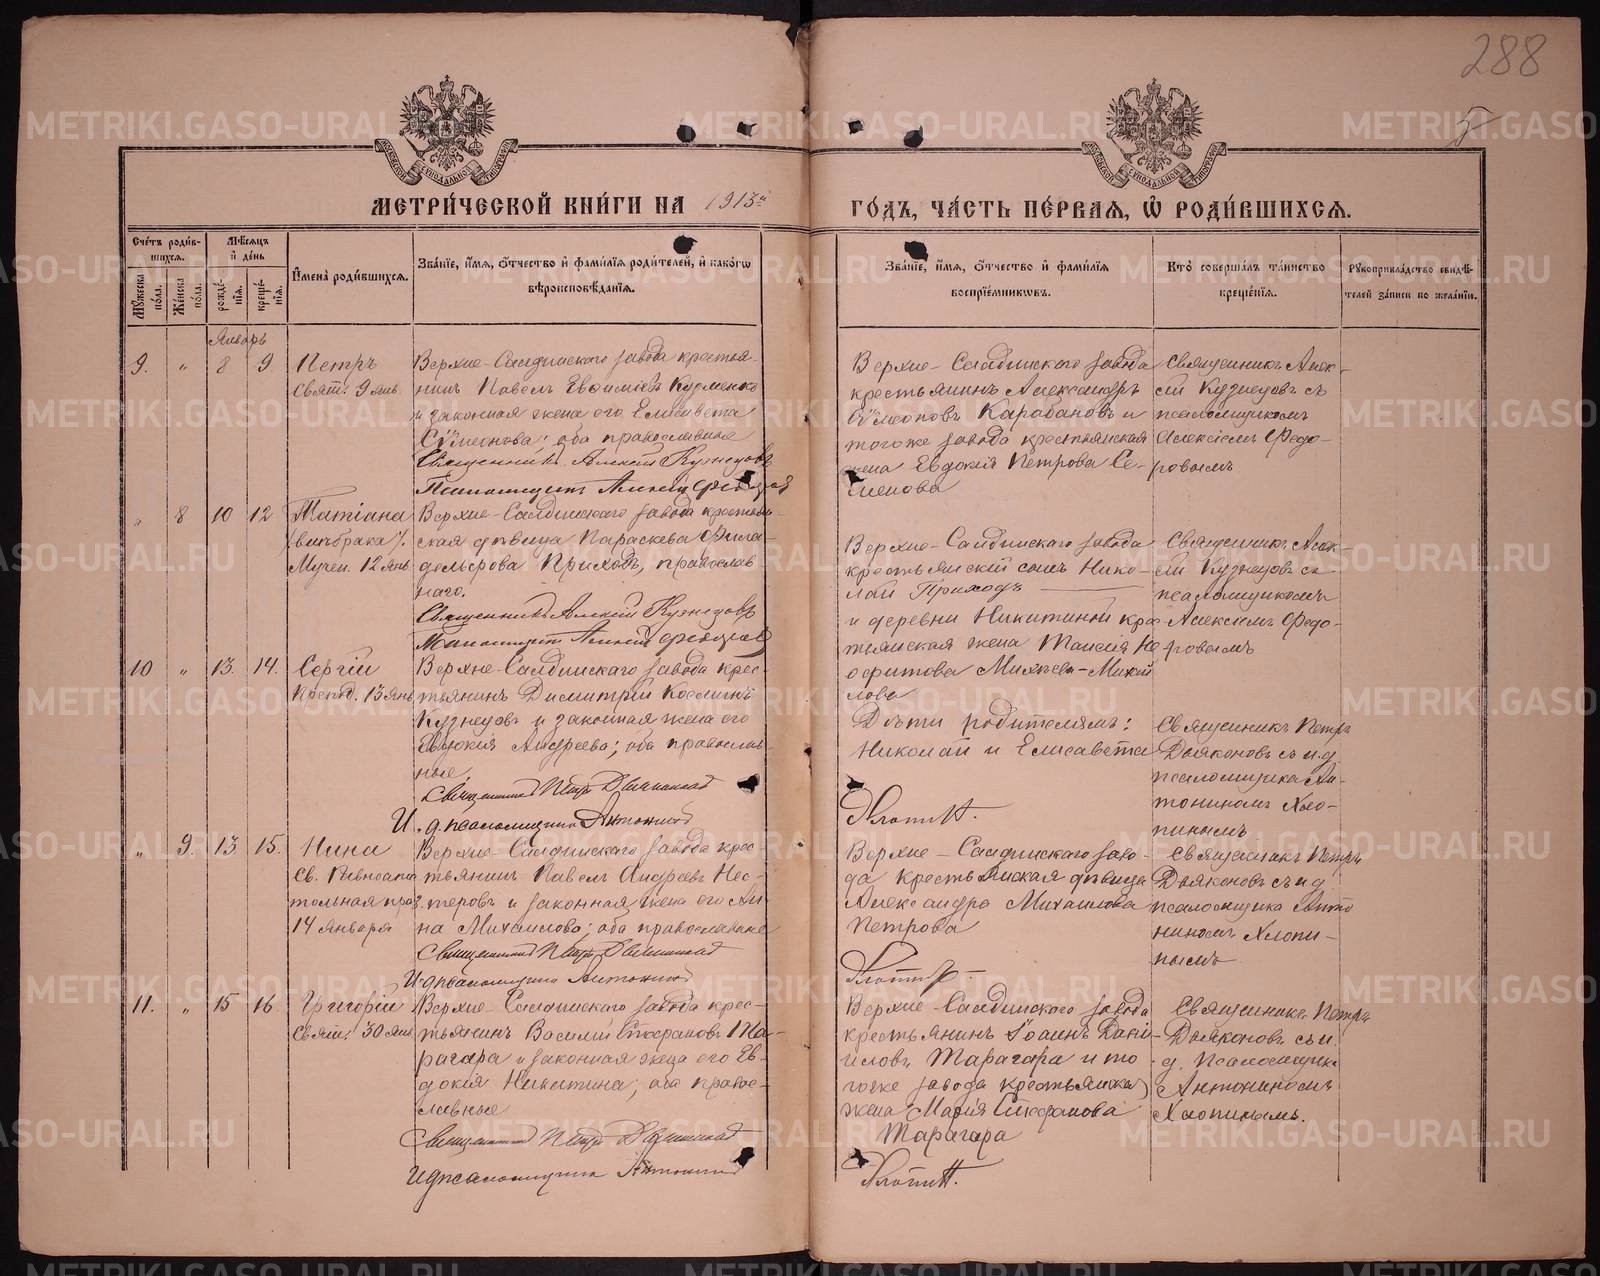 288
5
МЕТРИ́ЧЕСКОЙ КНИ́ГИ НА 1913й ГО́ДЪ, ЧА́СТЬ ПЕ́РВАЯ, Ѡ РОДИ́ВШИХСЯ.
Сче́тъ роди́в-
шихся.
Му́жеска по́ла.
Же́нска по́ла.
Мѣ́сяцъ и день
рожде́нїя.
креще́нїя.
Имена̀ роди́вшихся.
Зва́нїе, и́мя, о́тчество и фами́лїя роди́телей, и како́гѡ
вѣроисповѣ́данїя.
Зва́нїе, и́мя, о́тчество и фами́лїя
воспрїе́мникѡвъ.
Кто̀ соверша́лъ та́инство
креще́нїя.
Рукоприкла́дство свидѣ́-
телей за́писи по жела́нїю.
Январь
9. " 8 9
Петръ
Свят. 9 янв
Верхне-Салдинскаго завода крестья-
нинъ Павелъ Евѳиміевъ
и законная жена его Елисавета
Сѵмеонова; оба православные
Священникъ Алексій Кузнецовъ
Псаломщикъ Алексій Федоровъ
Верхне-Салдинскаго завода
крестьянинъ Александръ
Сѵмеоновъ Карабановъ и
тогоже завода крестьянская
жена Евдокія Петрова Се-
менова
Священникъ Алек-
сій Кузнецовъ съ
псаломщикомъ
Алексіемъ Федо-
ровымъ
" 8 10 12
Татіана
(внѣбрака).
Мучен. 12 янв
Верхне-Салдинскаго завода крестьян-
ская дѣвица Параскева Фила-
дельфова Приходъ, православ
наго.
Священникъ Алексій Кузнецовъ
Псаломщикъ Алексій Федоровъ
Верхне-Салдинскаго завода
крестьянскій сынъ Нико-
лай Приходъ
и деревни Никитиной крес
тьянская жена Таисія
Священникъ Алек-
сій Кузнецовъ съ
псаломщикомъ
Алексіемъ Федо-
ровымъ
10 " 13. 14.
Сергій
Препод. 13 янв
Верхне-Салдинскаго завода крес-
тьянинъ Димитрій Косминъ
Кузнецовъ и законная жена его
Евдокія Андреева; оба православ-
ные.
Священникъ Петръ Дьяконовъ
И. д. псаломщика Антонинъ
Дѣти родителямъ:
Николай и Елисавета
Священникъ Петръ
Дьяконовъ съ и.д.
псаломщика Ан-
тониномъ Хло-
пинымъ
" 9. 13 15.
Нина
Св. Равноапо
стольная праз.
14 января
Верхне-Салдинскаго завода крес-
тьянинъ Павелъ Андреевъ Нес-
теровъ и законная жена его Ан-
на Михаилова; оба православные
Священникъ Петръ Дьяконовъ
И.д. псаломщика Антонинъ
Верхне-Салдинскаго заво-
да крестьянская дѣвица
Александра Михаилова
Петрова
Священникъ Петръ
Дьяконовъ съ и.д.
псаломщика Анто
ниномъ Хлопи-
нымъ
11. " 15 16.
Григорій
Свят. 30 янв
Верхне-Салдинскаго завода крес-
тьянинъ Василій Стефановъ Та-
рагара и законная жена его Ев-
докія Никитина; оба правос-
лавные
Священникъ Петръ Дьяконовъ
И.д. псаломщика Антонинъ
Верхне-Салдинскаго завода
крестьянинъ Іоаннъ Дані-
иловъ Тарагара и то
гоже завода крестьянская
жена Марія Стефанова
Тарагара
Священникъ Петръ
Дьяконовъ съ и.
д. псаломщика
Антониномъ
Хлопинымъ.
METRIKI.GASO-URAL.RU